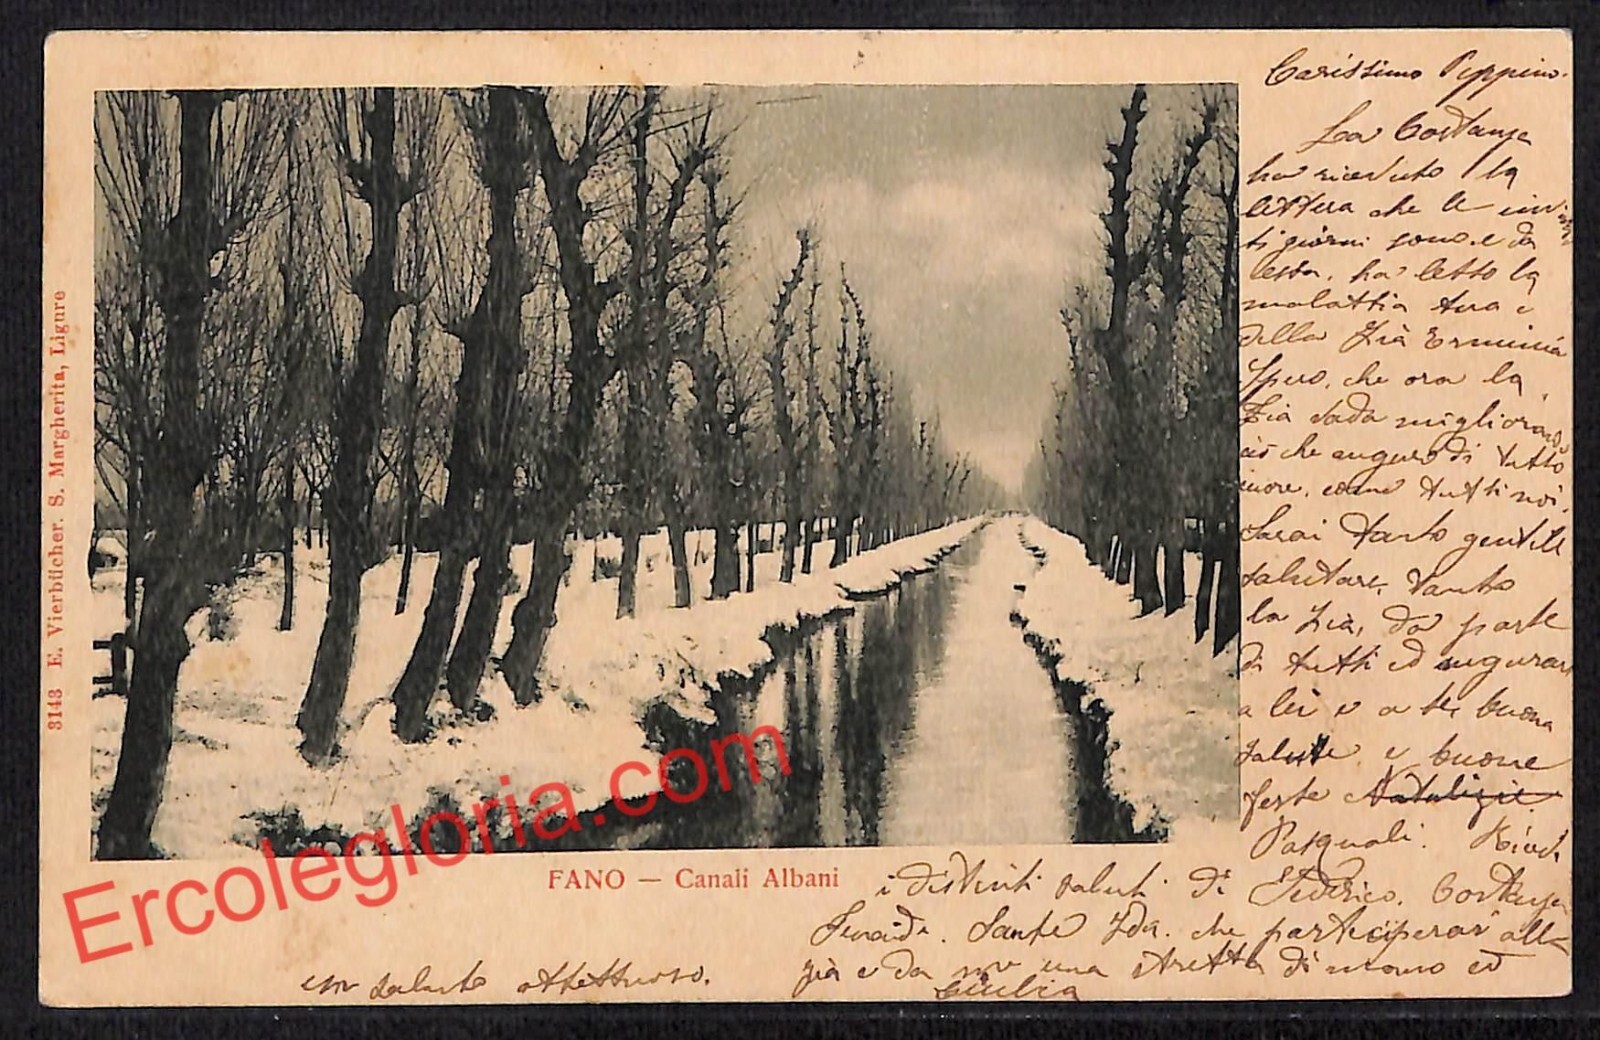 3143 E. Vierbücher. S. Margherita, Ligure
Carissimo Peppino.
La Costanza
ha ricevuto la
lettera che le
ti giorni sono. e da
essa, ha letto la
malattia tua e
della Zia Erminia
Spero, che ora la
Zia vada migliorando
ciò che auguro di tutto
cuore, come tutti noi.
Sarai tanto gentile
salutare, tanto
la Zia, da parte
di tutti ed augurare
a lei e a te, buona
salute, e buone
feste Natalizie
Pasquali.
i distinti saluti di Federico, Costanza
Sante Ida. che parteciperai alla
zia e da me una stretta di mano ed
un saluto affettuoso.
Giulia
FANO — Canali Albani
Ercolegloria.com